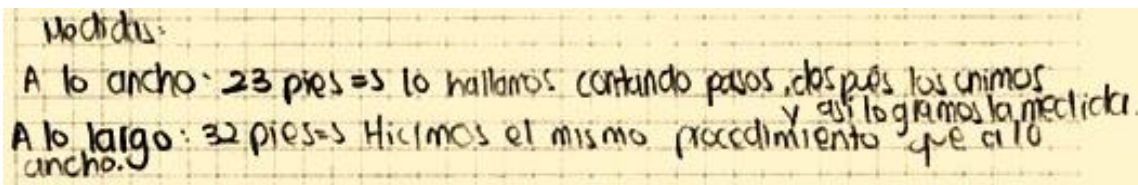 Medidas:
A lo ancho: 23 pies => lo hallamos contando pasos, después los unimos
y así logramos la medida.
A lo largo: 32 pies => Hicimos el mismo procedimiento que a lo
ancho.